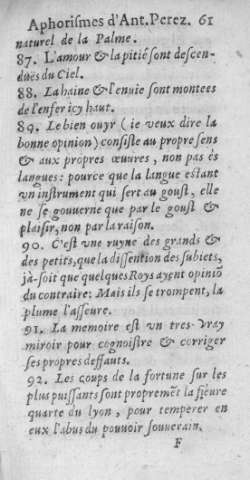 Aphorismes d'Ant. Perez. 61
naturel de la Palme.
87. L'amour & la pitié sont descen-
dues du Ciel.
88. La haine & l'enuie sont montees
de l'enfer icy haut.
89. Le bien ouyr ( ie veux dire la
bonne opinion ) consiste au propre sens
& aux propres œuures, non pas és
langues: pource que la langue estant
vn instrument qui sert au goust, elle
ne se gouuerne que par le goust &
plaisir, non par la raison.
90. C'est vne ruyne des grands &
des petits, que la dissention des subiets,
jà-soit que quelques Roys ayent opiniõ
du contraire: Mais ils se trompent, la
plume l'asseure.
91. La memoire est vn tres-vray
miroir pour cognoistre & corriger
ses propres deffauts.
92. Les coups de la fortune sur les
plus puissants sont propremẽt la fieure
quarte du lyon, pour temperer en
eux l'abus du pouuoir souuerain.
F